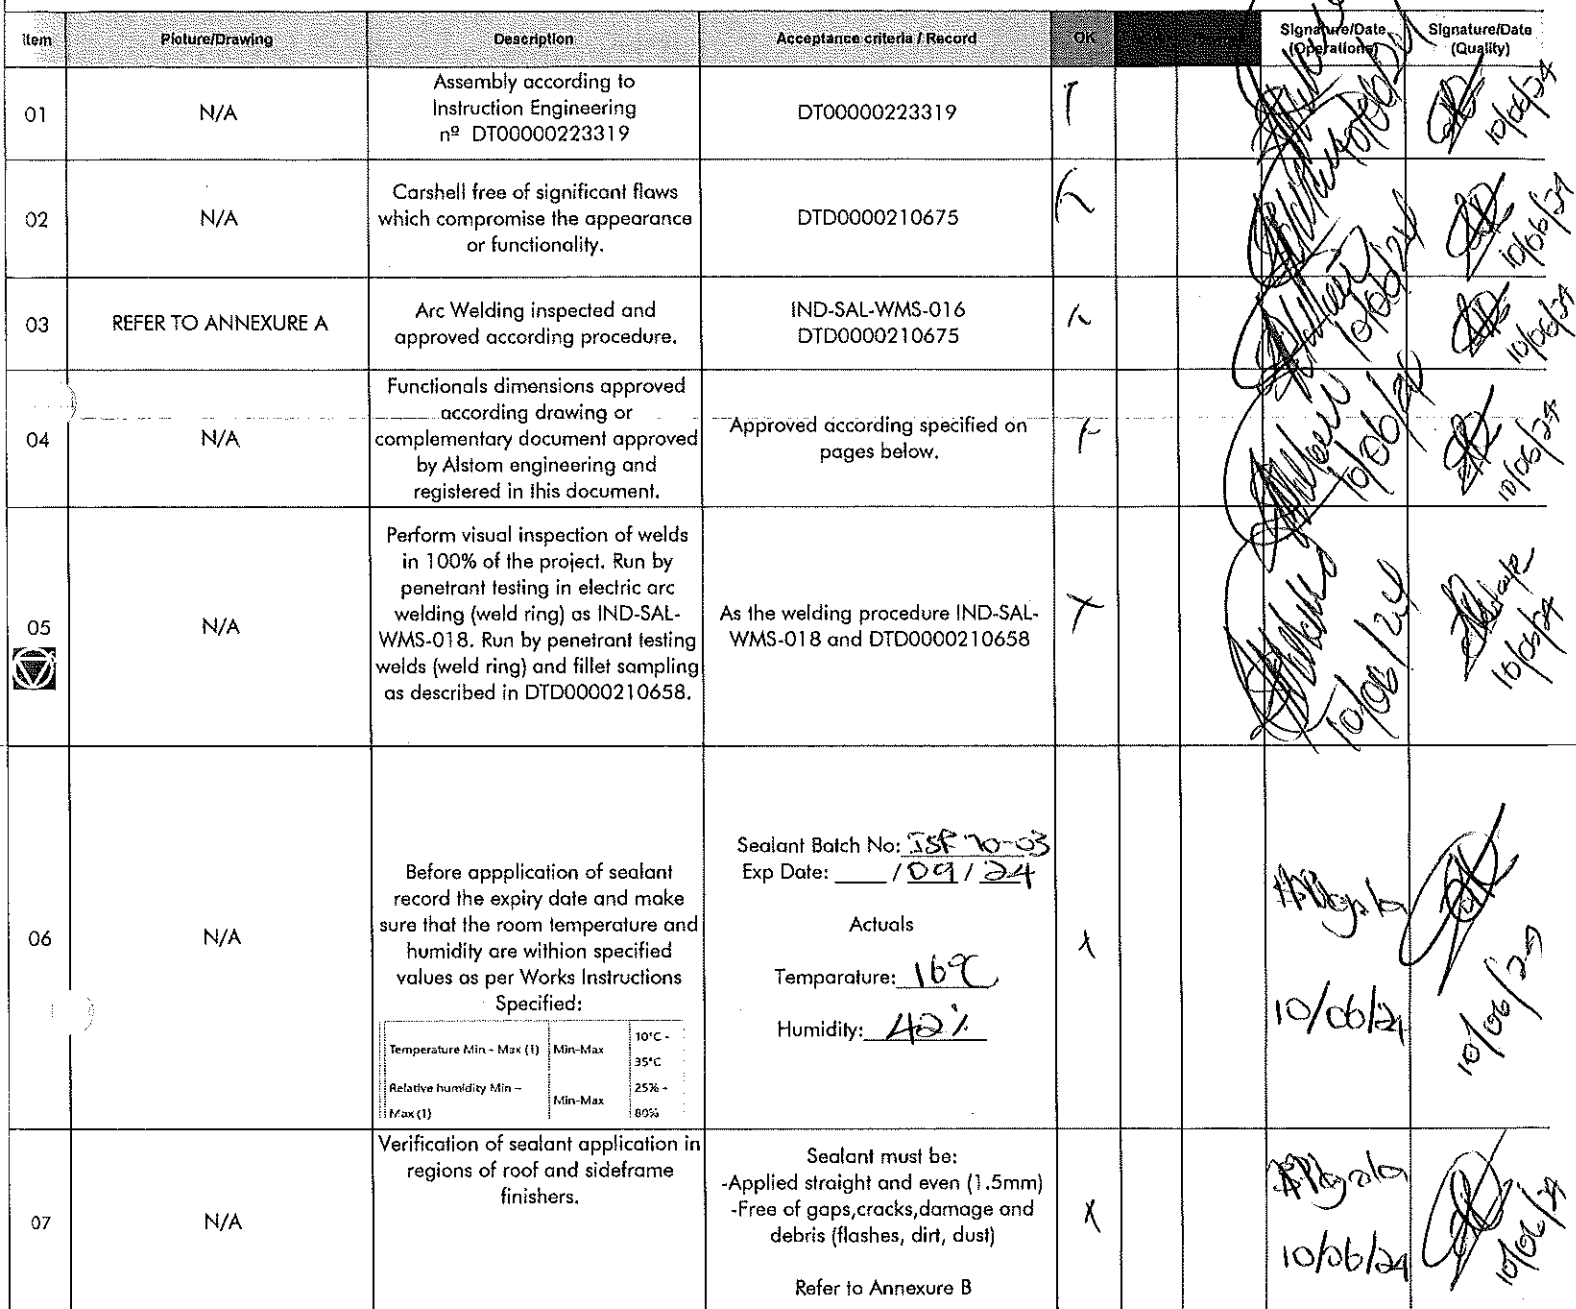 Item Picture/Drawing Description Acceptance criteria / Record OK Signature/Date (Operations) Signature/Date (Quality)
01
N/A
Assembly according to
Instruction Engineering
nº DT00000223319
DT00000223319
10/06/24
10/06/24
02
N/A
Carshell free of significant flaws
which compromise the appearance
or functionality.
DTD0000210675
10/06/24
10/06/24
03
REFER TO ANNEXURE A
Arc Welding inspected and
approved according procedure.
IND-SAL-WMS-016
DTD0000210675
10/06/24
10/06/24
04
N/A
Functionals dimensions approved
according drawing or
complementary document approved
by Alstom engineering and
registered in this document.
Approved according specified on
pages below.
10/06/24
10/06/24
05
N/A
Perform visual inspection of welds
in 100% of the project. Run by
penetrant testing in electric arc
welding (weld ring) as IND-SAL-
WMS-018. Run by penetrant testing
welds (weld ring) and fillet sampling
as described in DTD0000210658.
As the welding procedure IND-SAL-
WMS-018 and DTD0000210658
10/06/24
10/06/24
06
N/A
Before appplication of sealant
record the expiry date and make
sure that the room temperature and
humidity are withion specified
values as per Works Instructions
Specified:
Temperature Min - Max (1) Min-Max 10°C - 35°C
Relative humidity Min – Max (1) Min-Max 25% - 80%
Sealant Batch No: 70-03
Exp Date: ____ / 09 / 24
Actuals
Temparature: 16°C
Humidity: 42%
10/06/24
10/06/24
07
N/A
Verification of sealant application in
regions of roof and sideframe
finishers.
Sealant must be:
-Applied straight and even (1.5mm)
-Free of gaps,cracks,damage and
debris (flashes, dirt, dust)
Refer to Annexure B
10/06/24
10/06/24